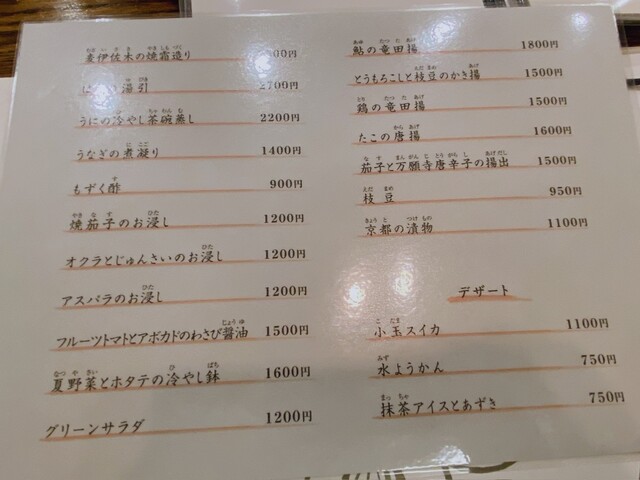 麦伊佐木の焼霜造り
湯引 2700円
うにの冷やし茶碗蒸し 2200円
うなぎの煮凝り 1400円
もずく酢 900円
焼茄子のお浸し 1200円
オクラとじゅんさいのお浸し 1200円
アスパラのお浸し 1200円
フルーツトマトとアボカドのわさび醤油 1500円
夏野菜とホタテの冷やし鉢 1600円
グリーンサラダ 1200円
鮎の竜田揚 1800円
とうもろこしと枝豆のかき揚 1500円
鶏の竜田揚 1500円
たこの唐揚 1600円
茄子と万願寺唐辛子の揚出 1500円
枝豆 950円
京都の漬物 1100円
デザート
小玉スイカ 1100円
水ようかん 750円
抹茶アイスとあずき 750円